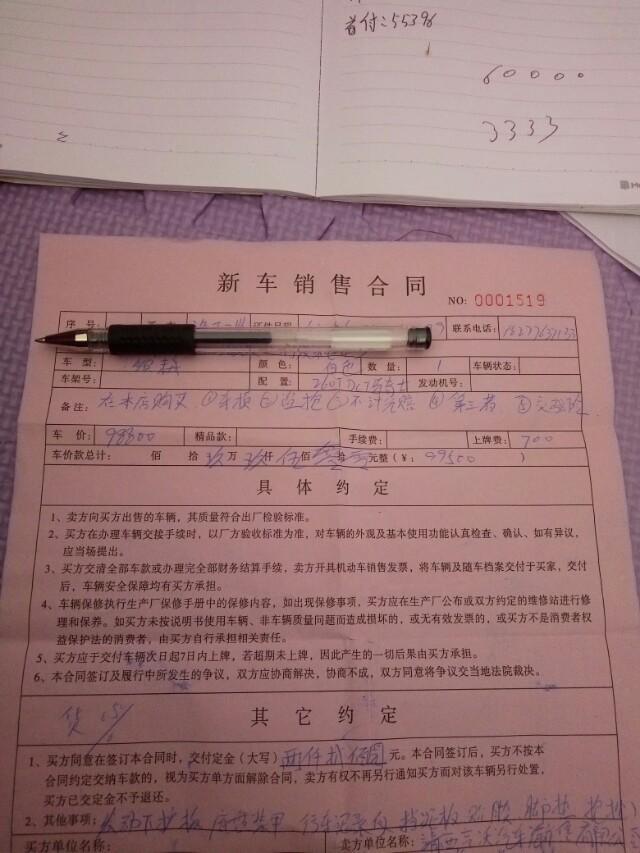 首付：55396
60000
3333
新车销售合同
NO: 0001519
序号: 联系电话:
车型: 颜色: 白色 数量: 1 车辆状态:
车架号: 配置: 发动机号:
备注: 在本店购买 ①车损 ②盗抢 ③不计免赔 ④第三者 ⑤交强险
车价: 98800 精品款: 手续费: 上牌费: 700
车价款总计: 佰 拾玖万玖仟伍佰 拾 元整（¥: 99500 ）
具体约定
1、卖方向买方出售的车辆，其质量符合出厂检验标准。
2、买方在办理车辆交接手续时，以厂方验收标准为准，对车辆的外观及基本使用功能认真检查、确认、如有异议，
应当场提出。
3、买方交清全部车款或办理完全部财务结算手续，卖方开具机动车销售发票，将车辆及随车档案交付于买家，交付
后，车辆安全保障均有买方承担。
4、车辆保修执行生产厂保修手册中的保修内容，如出现保修事项，买方应在生产厂公布或双方约定的维修站进行修
理和保养。如买方未按说明书使用车辆、非车辆质量问题而造成损坏的，或无有效发票的，或买方不是消费者权
益保护法的消费者，由买方自行承担相关责任。
5、买方应于交付车辆次日起7日内上牌，若超期未上牌，因此产生的一切后果由买方承担。
6、本合同签订及履行中所发生的争议，双方应协商解决，协商不成，双方同意将争议交当地法院裁决。
其它约定
1、买方同意在签订本合同时，交付定金（大写） 元。本合同签订后，买方不按本
合同约定交纳车款的，视为买方单方面解除合同，卖方有权不再另行通知买方而对该车辆另行处置，
买方已交定金不予退还。
2、其他事项: 发动机下护板 底盘装甲 行车记录仪 挡泥板 贴膜 脚垫
买方单位名称: 卖方单位名称: